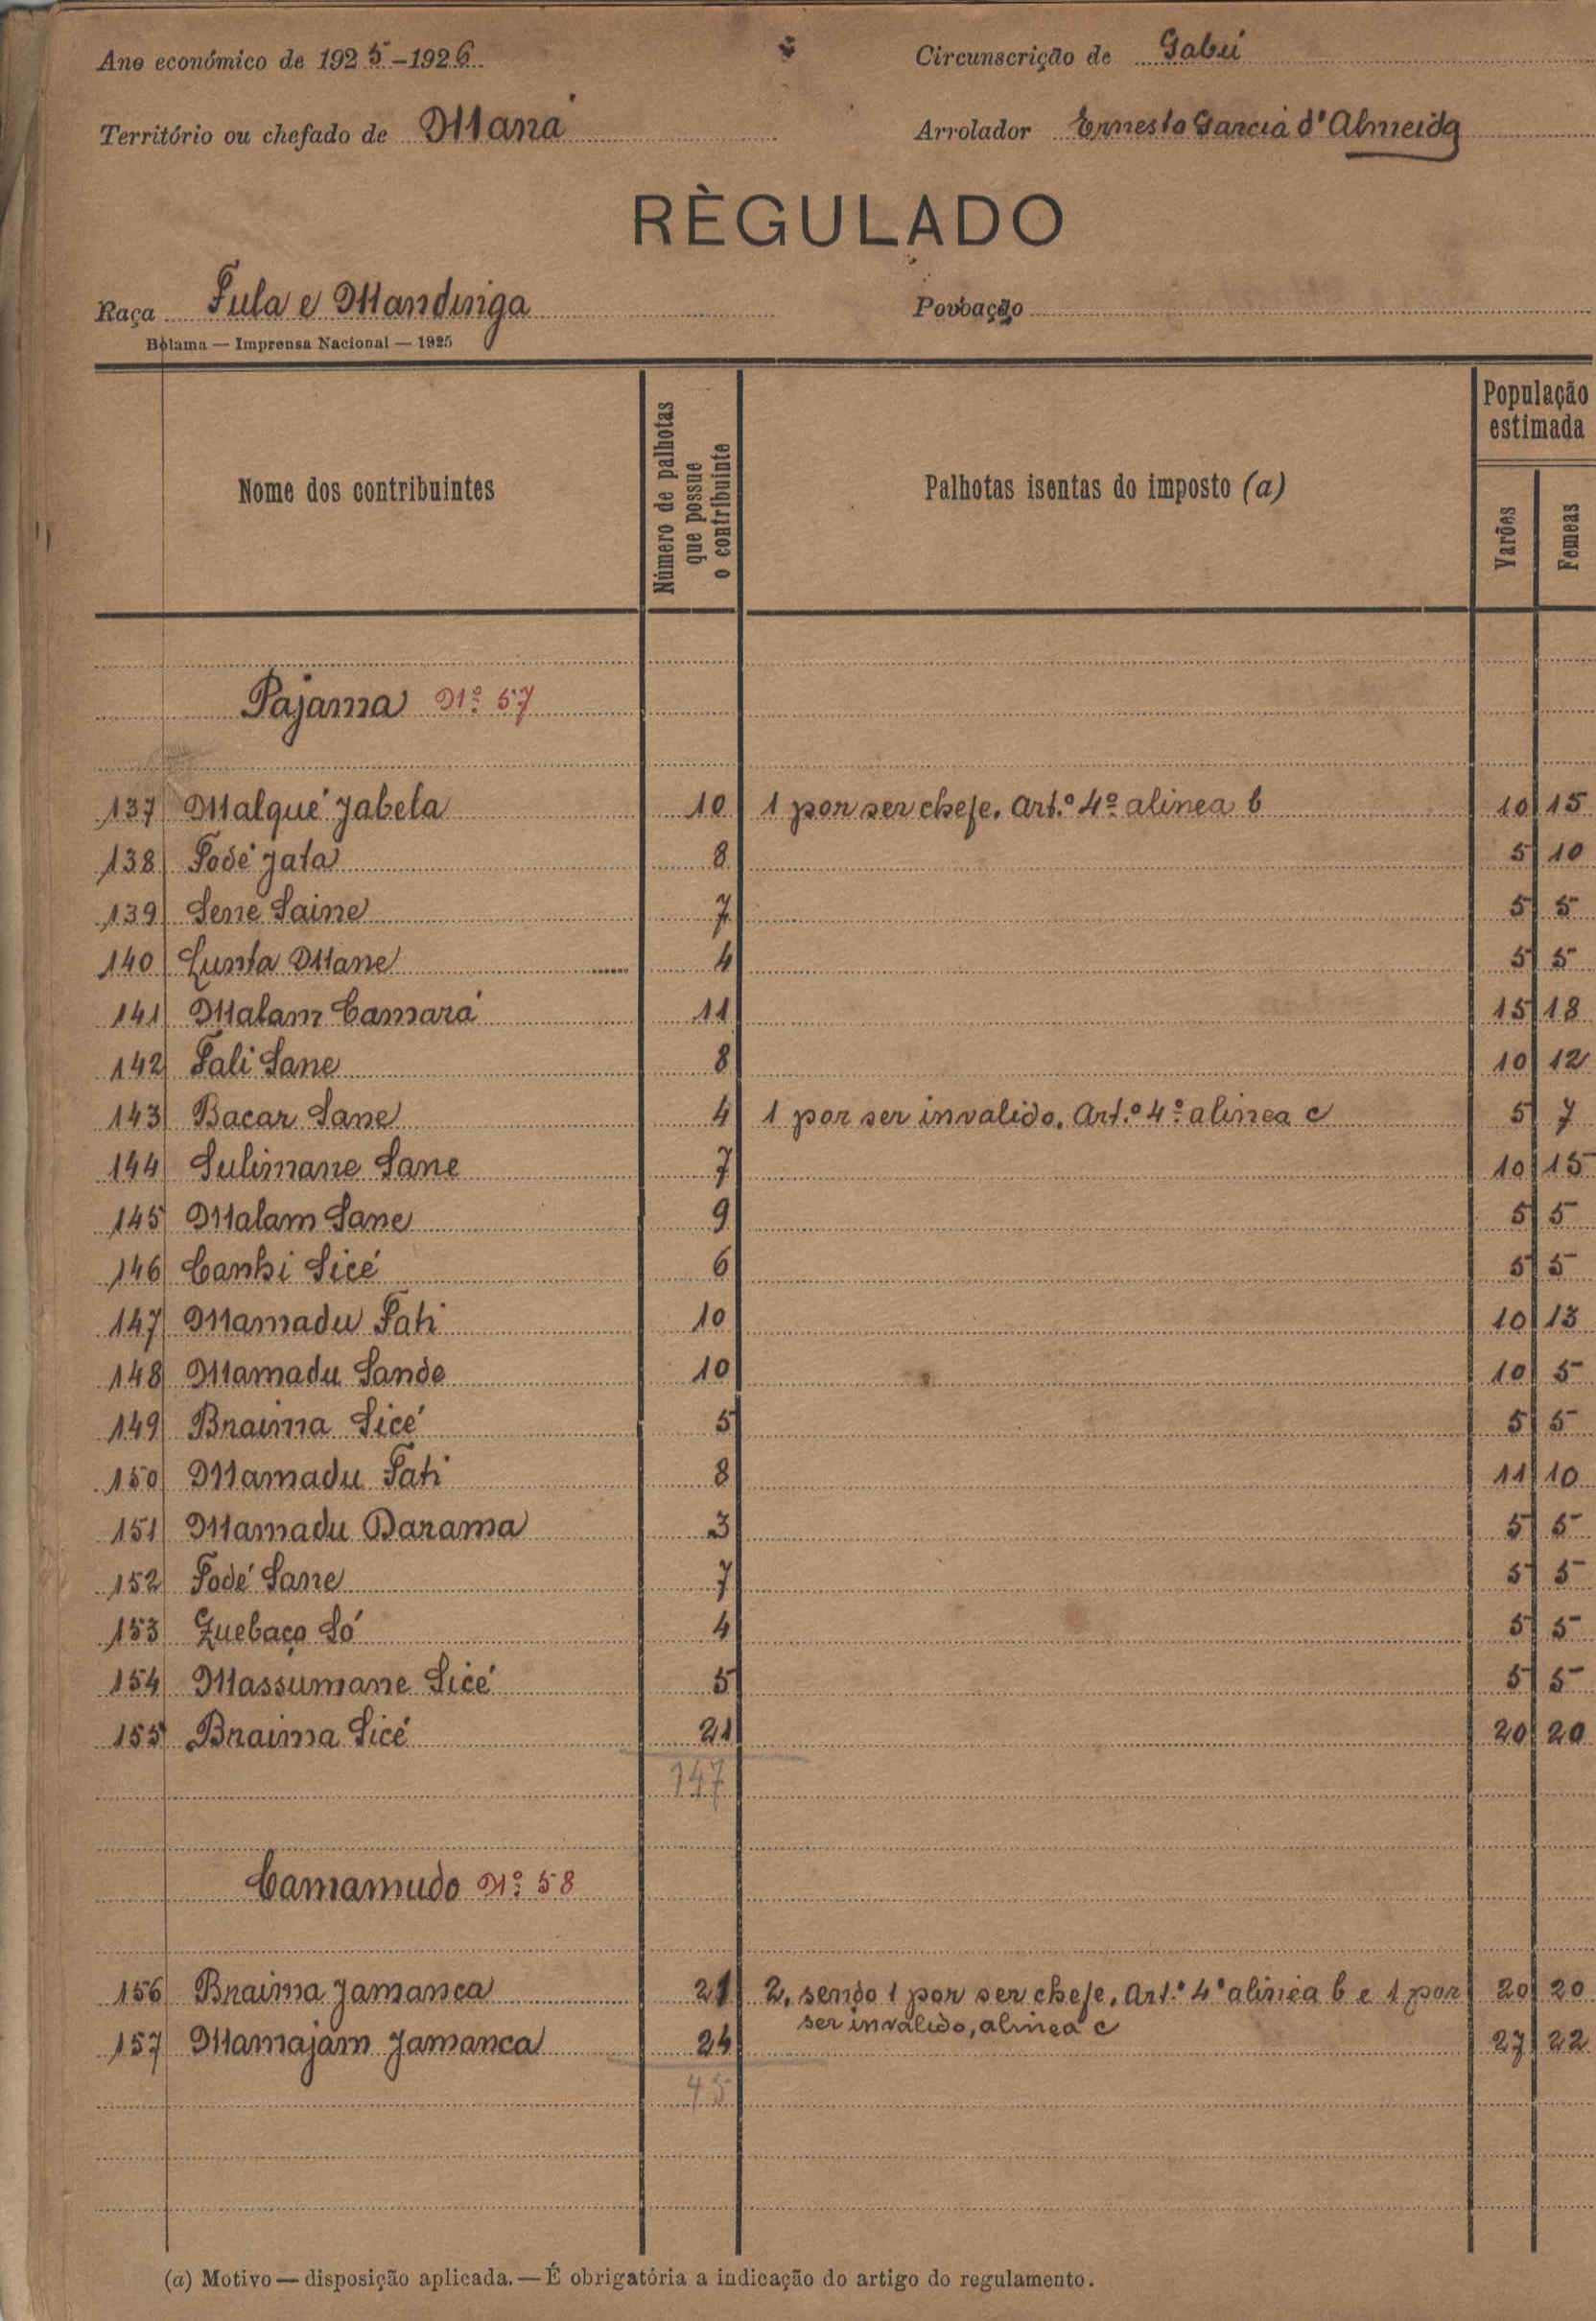 Ano económico de 1925-1926
Circunscrição de Gabú
Território ou chefado de Maná
Arrolador Ernesto Garcia d'Almeida
RÈGULADO
Raça Fula e Mandinga
Povoação
Bolama — Imprensa Nacional — 1925
Nome dos contribuintes
Número de palhotas que possue o contribuinte
Palhotas isentas do imposto (a)
População estimada
Varões
Femeas
Pajama Nº 57
137 Malqué Jabela 10 1 por ser chefe, Art.º 4º alinea b 10 15
138 Fodé Jata 8 5 10
139 Sene Saine 7 5 5
140 Lunta Mane 4 5 5
141 Malam Camará 11 15 18
142 Fali Sane 8 10 12
143 Bacar Sane 4 1 por ser invalido, Art.º 4º alinea c 5 7
144 Sulimane Sane 7 10 15
145 Malam Sane 9 5 5
146 Canhi Sicé 6 5 5
147 Mamadu Fati 10 10 13
148 Mamadu Sande 10 10 5
149 Braima Sicé 5 5 5
150 Mamadu Fati 8 11 10
151 Mamadu Darama 3 5 5
152 Fodé Sane 7 5 5
153 Quebaço Só 4 5 5
154 Massumane Sicé 5 5 5
155 Braima Sicé 21 20 20
147
Camamudo Nº 58
156 Braima Jamanca 21 2, sendo 1 por ser chefe, Art.º 4º alinea b e 1 por 20 20
ser invalido, alinea c
157 Mamajam Jamanca 24 27 22
45
(a) Motivo — disposição aplicada. — É obrigatória a indicação do artigo do regulamento.